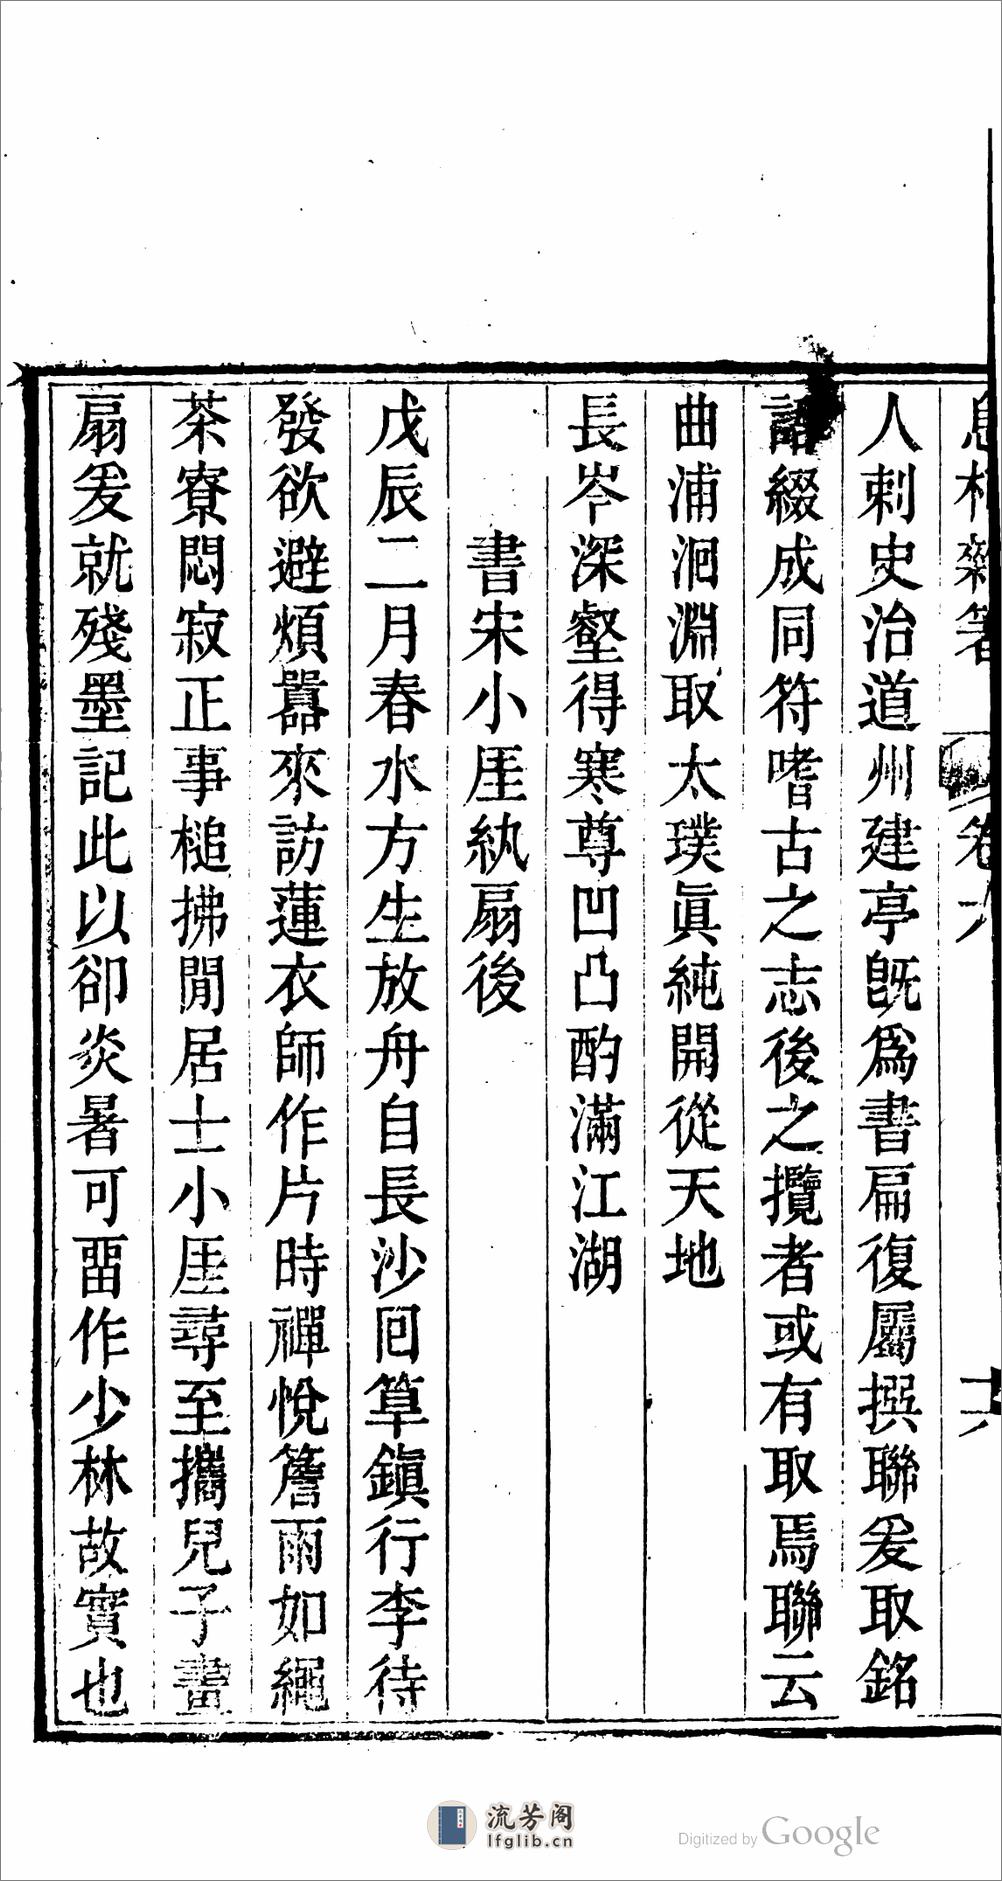 息柯雜箸 卷六 十六
人刺史治道州建亭旣爲書扁復屬撰聯爰取銘
語綴成同符嗜古之志後之攬者或有取焉聯云
曲浦洄淵取太璞眞純開從天地
長岑深壑得寒尊凹凸酌滿江湖
書宋小厓紈扇後
戊辰二月春水方生放舟自長沙回草鎮行李待
發欲避煩囂來訪蓮衣師作片時禪悅簷雨如繩
茶寮悶寂正事槌拂閒居士小厓尋至攜兒子畫
扇爰就殘墨記此以卻炎暑可畱作少林故實也
流芳阁
lfglib.cn
Digitized by Google